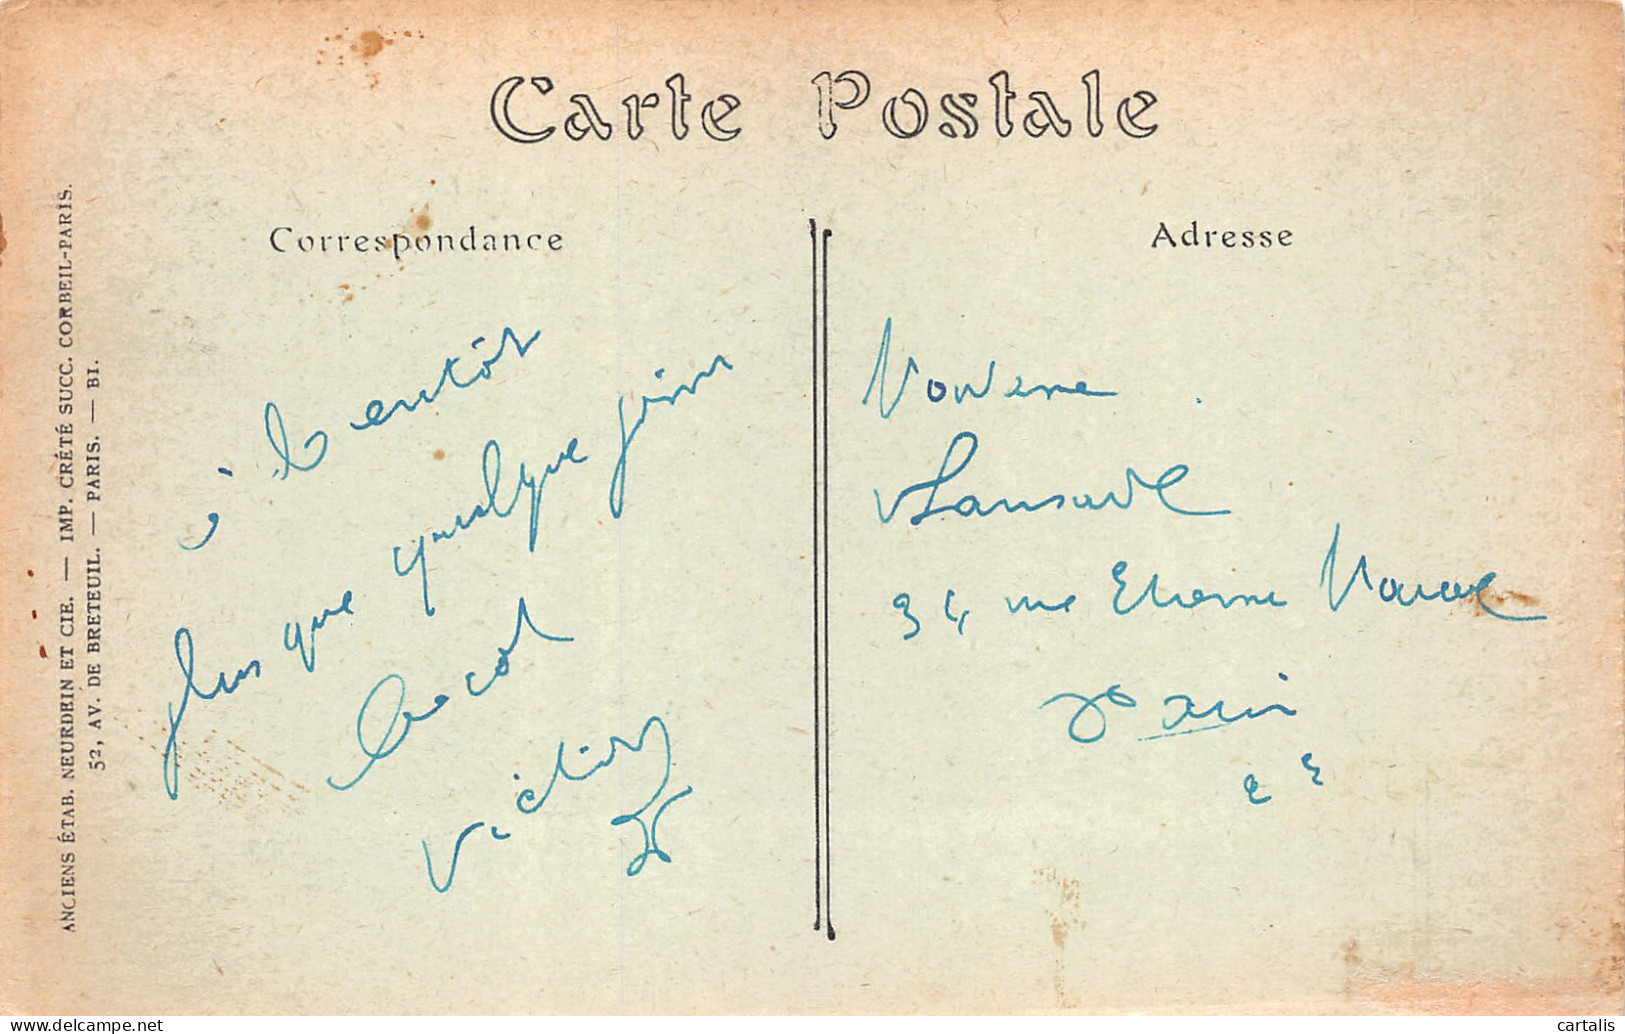 Carte Postale
Correspondance
Adresse
à bientôt
plus que quelque jours
Victor
34 rue Etienne Marcel
Paris
ANCIENS ÉTAB. NEURDEIN ET CIE. — IMP. CRÉTÉ SUCC. CORBEIL-PARIS.
52, AV. DE BRETEUIL. — PARIS. — BI.
cartalis